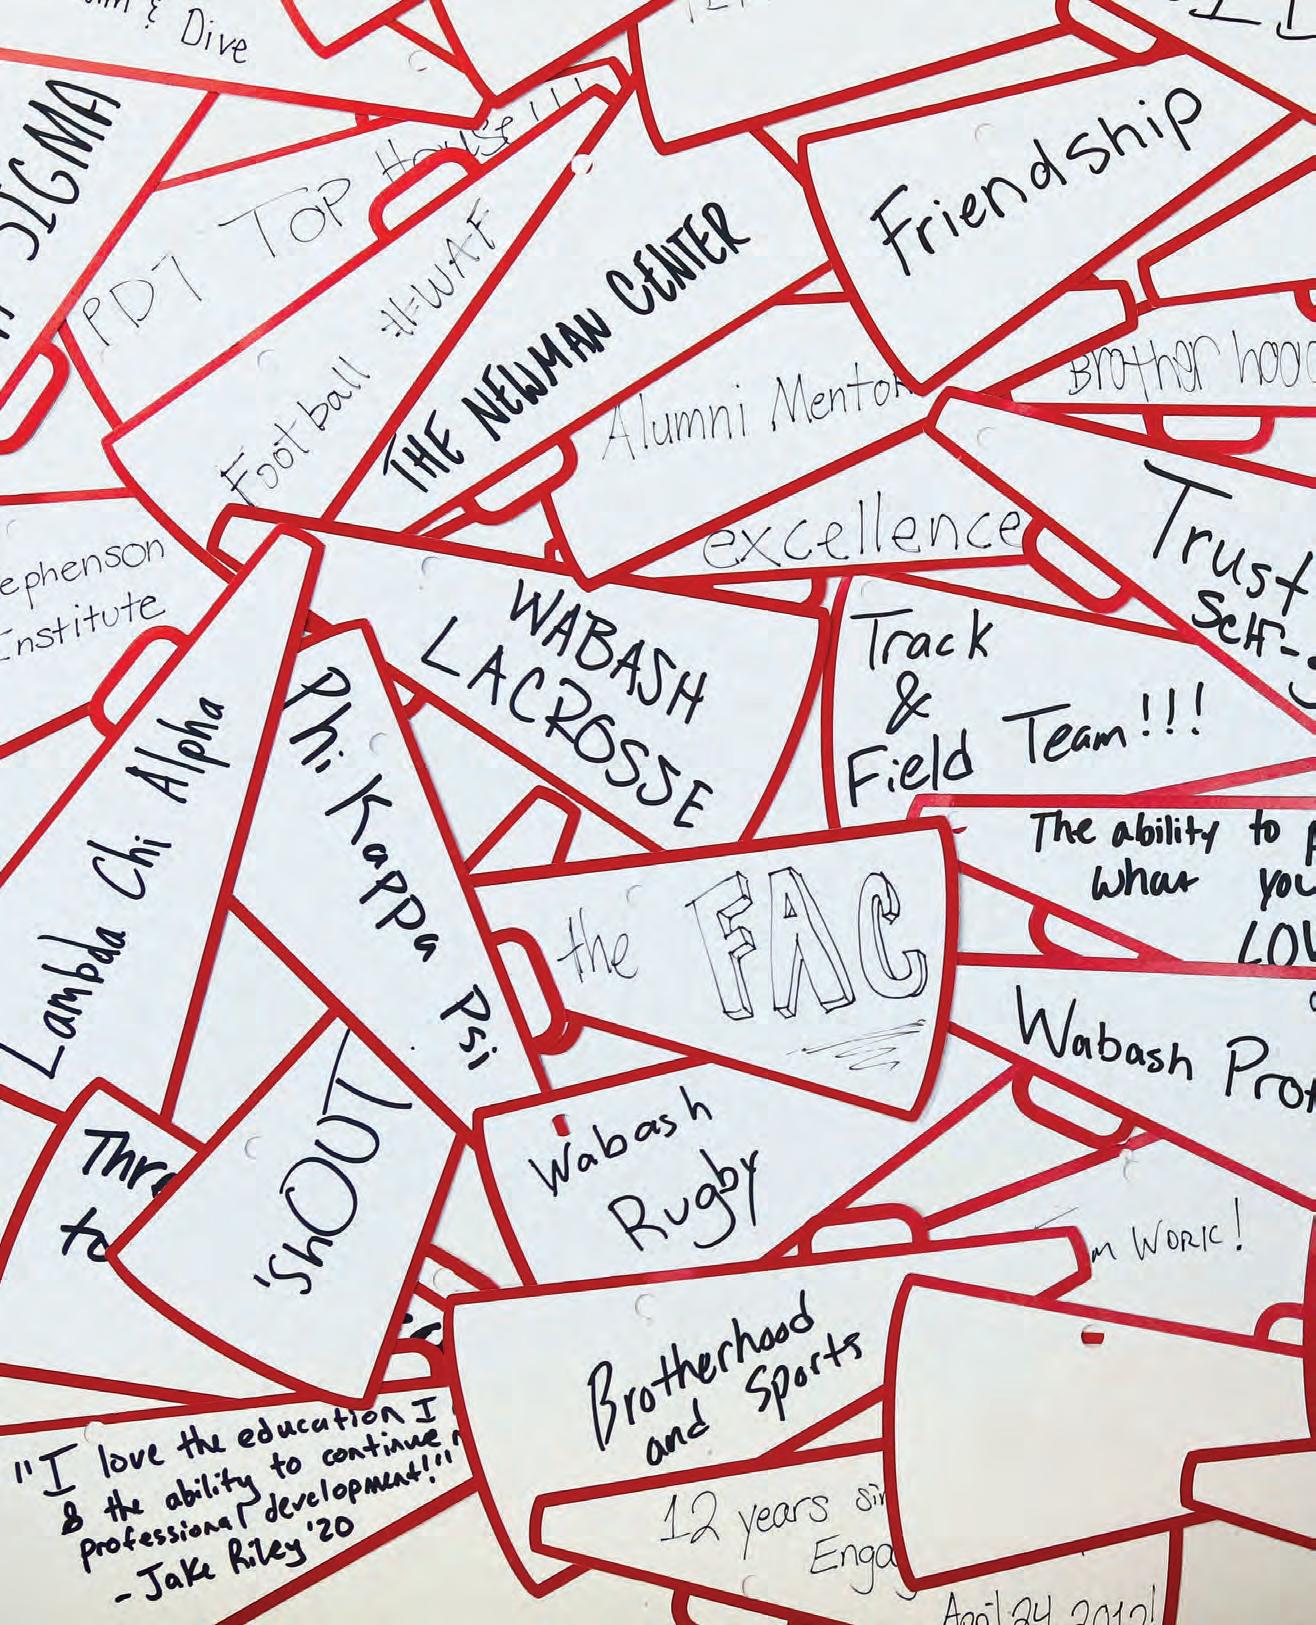 & Dive
SIGMA
PD7 TOP House!!!
Football #WAF
THE NEWMAN CENTER
Friendship
Alumni Mentor
Brother hood
excellence
Trust
Self-
ephenson
Institute
WABASH
LACROSSE
Track
&
Field Team!!!
Lambda Chi Alpha
Phi Kappa Psi
The ability to
what you
LOV
the FAC
Wabash Prof
'ShOUT
Thro
to
Wabash
Rugby
m WORK!
Brotherhood
and Sports
"I love the education I
& the ability to continue
professional development!"
- Jake Riley '20
12 years sin
Enga
April 24 2012!